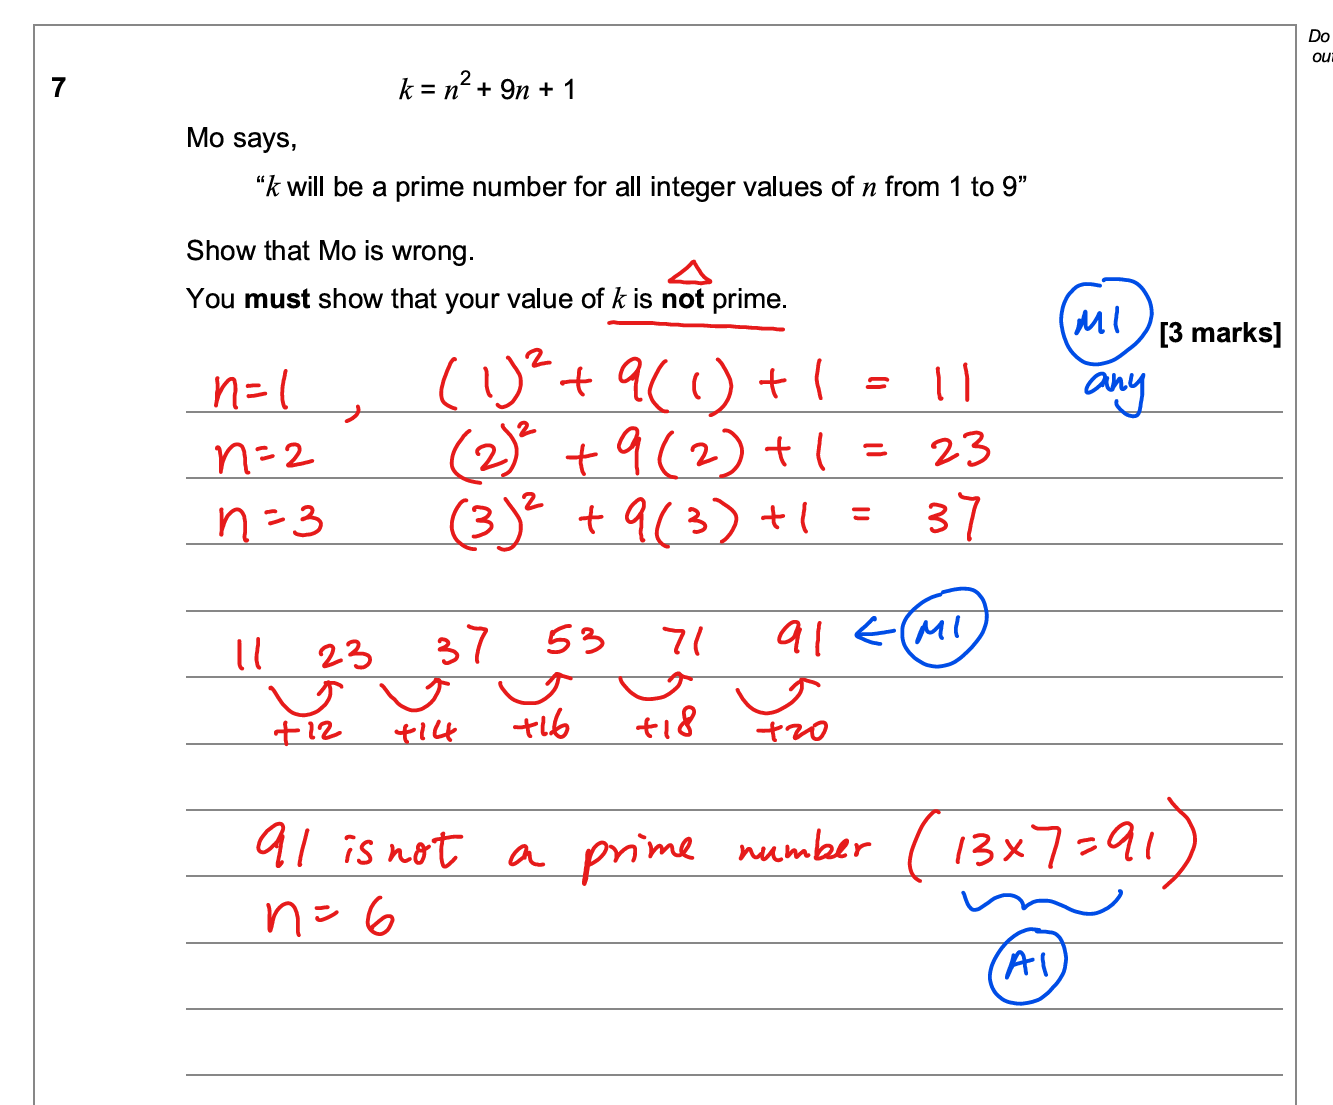 Do
out
7 k = n² + 9n + 1
Mo says,
“k will be a prime number for all integer values of n from 1 to 9”
Show that Mo is wrong.
You must show that your value of k is not prime.
M1 [3 marks]
any
n=1 , (1)² + 9(1) + 1 = 11
n=2 (2)² + 9(2) + 1 = 23
n=3 (3)² + 9(3) + 1 = 37
11 23 37 53 71 91 ← M1
+12 +14 +16 +18 +20
91 is not a prime number (13×7=91)
n=6
A1